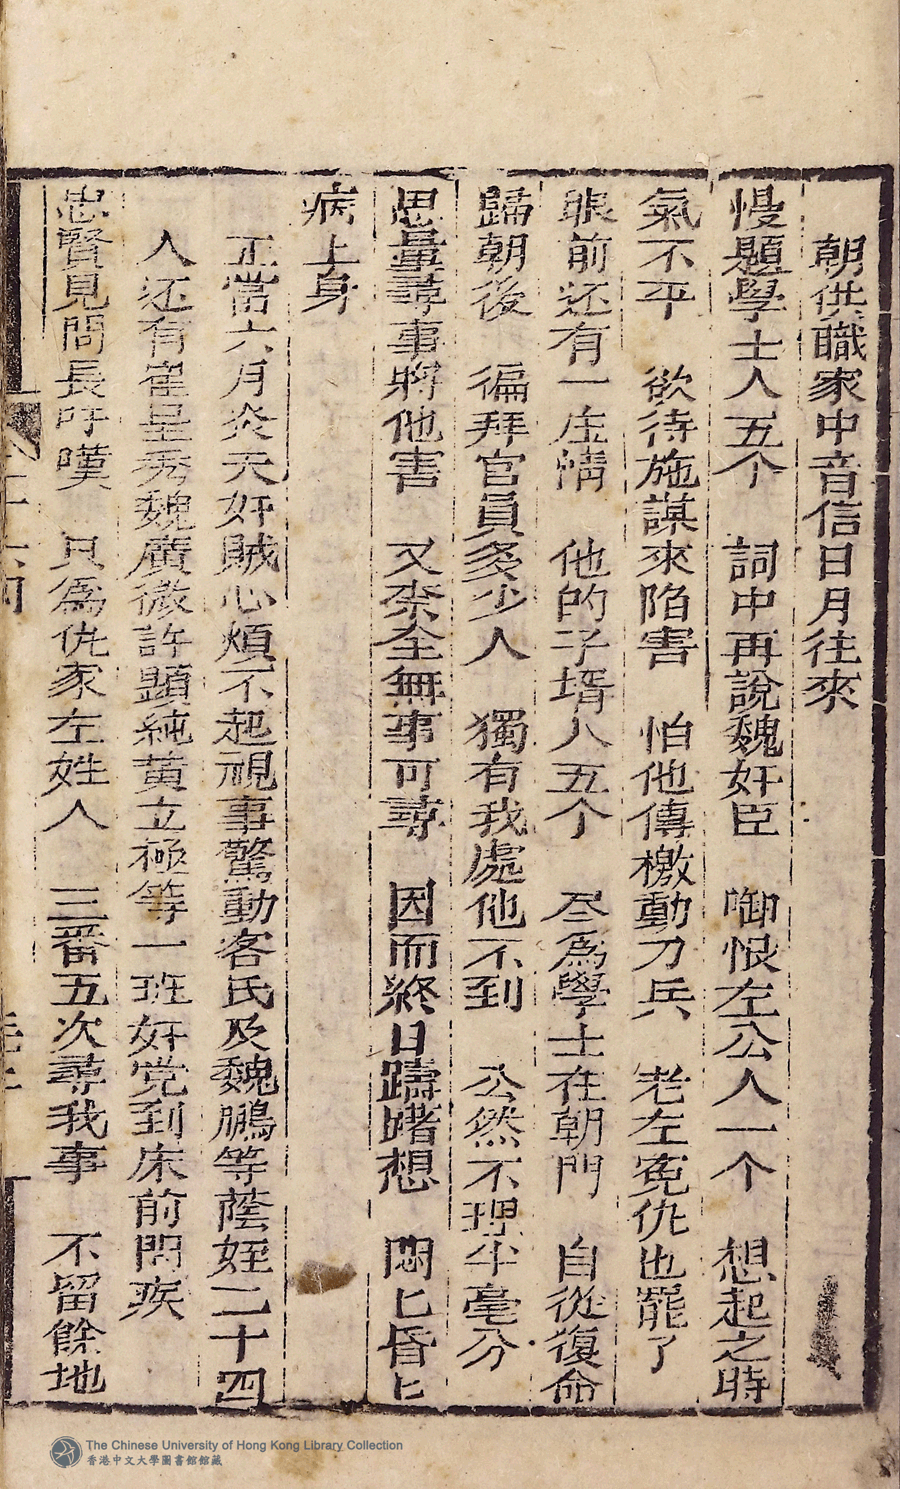 朝供職家中音信日月往來
慢題學士人五个　詞中再說魏奸臣　啣恨左公人一个　想起之時
氣不平　欲待施謀來陷害　怕他傳檄動刀兵　老左冤仇也罷了
眼前还有一庄情　他的子壻八五个　尽爲學士在朝門　自從復命
歸朝後　徧拜官員多少人　獨有我處他不到　公然不理半毫分
思量尋事將他害　又柰全無事可尋　因而終日躊躇想　悶匕昏匕
病上身
正當六月炎天奸賊心煩不起視事驚動客氏及魏鵬等蔭姪二十四
人还有崔呈秀魏廣微許顯純黄立極等一班奸党到床前問疾
忠賢見問長吁嘆　只爲仇家左姓人　三番五次尋我事　不留餘地
The Chinese University of Hong Kong Library Collection
香港中文大學圖書館館藏